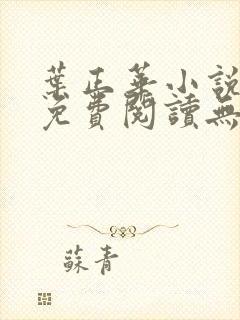 葉正華小說
免費閱讀無
蘇青